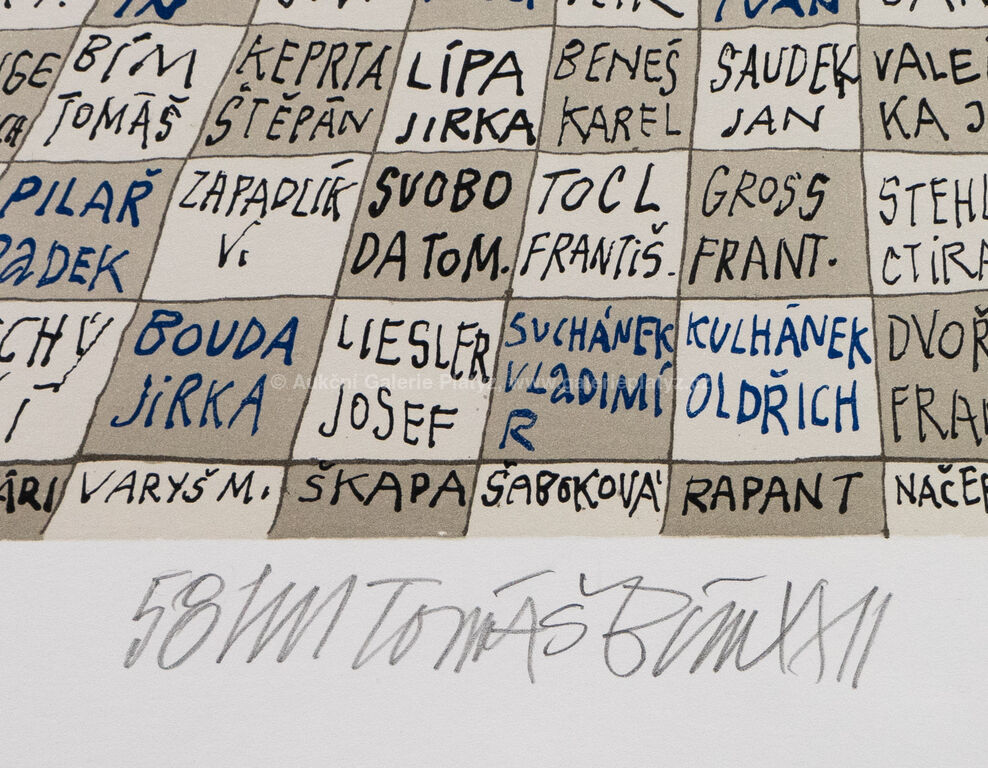 IVAN
BÍM
TOMÁŠ
KEPRTA
ŠTĚPÁN
LÍPA
JIRKA
BENEŠ
KAREL
SAUDEK
JAN
VALE
KA J
PILAŘ
RADEK
ZAPADLÍK
V.
SVOBO
DA TOM.
TOCL
FRANTIŠ.
GROSS
FRANT.
STEHL
CTIRA
CHÝ
BOUDA
JIRKA
LIESLER
JOSEF
SUCHÁNEK
VLADIMÍ
R
KULHÁNEK
OLDŘICH
DVOŘ
FRAN
© Aukční Galerie Platýz, www.galerieplatyz.cz
ÁRI
VARYŠ M.
ŠKAPA
ŠABOKOVÁ
RAPANT
NAČER
Tomáš Bím